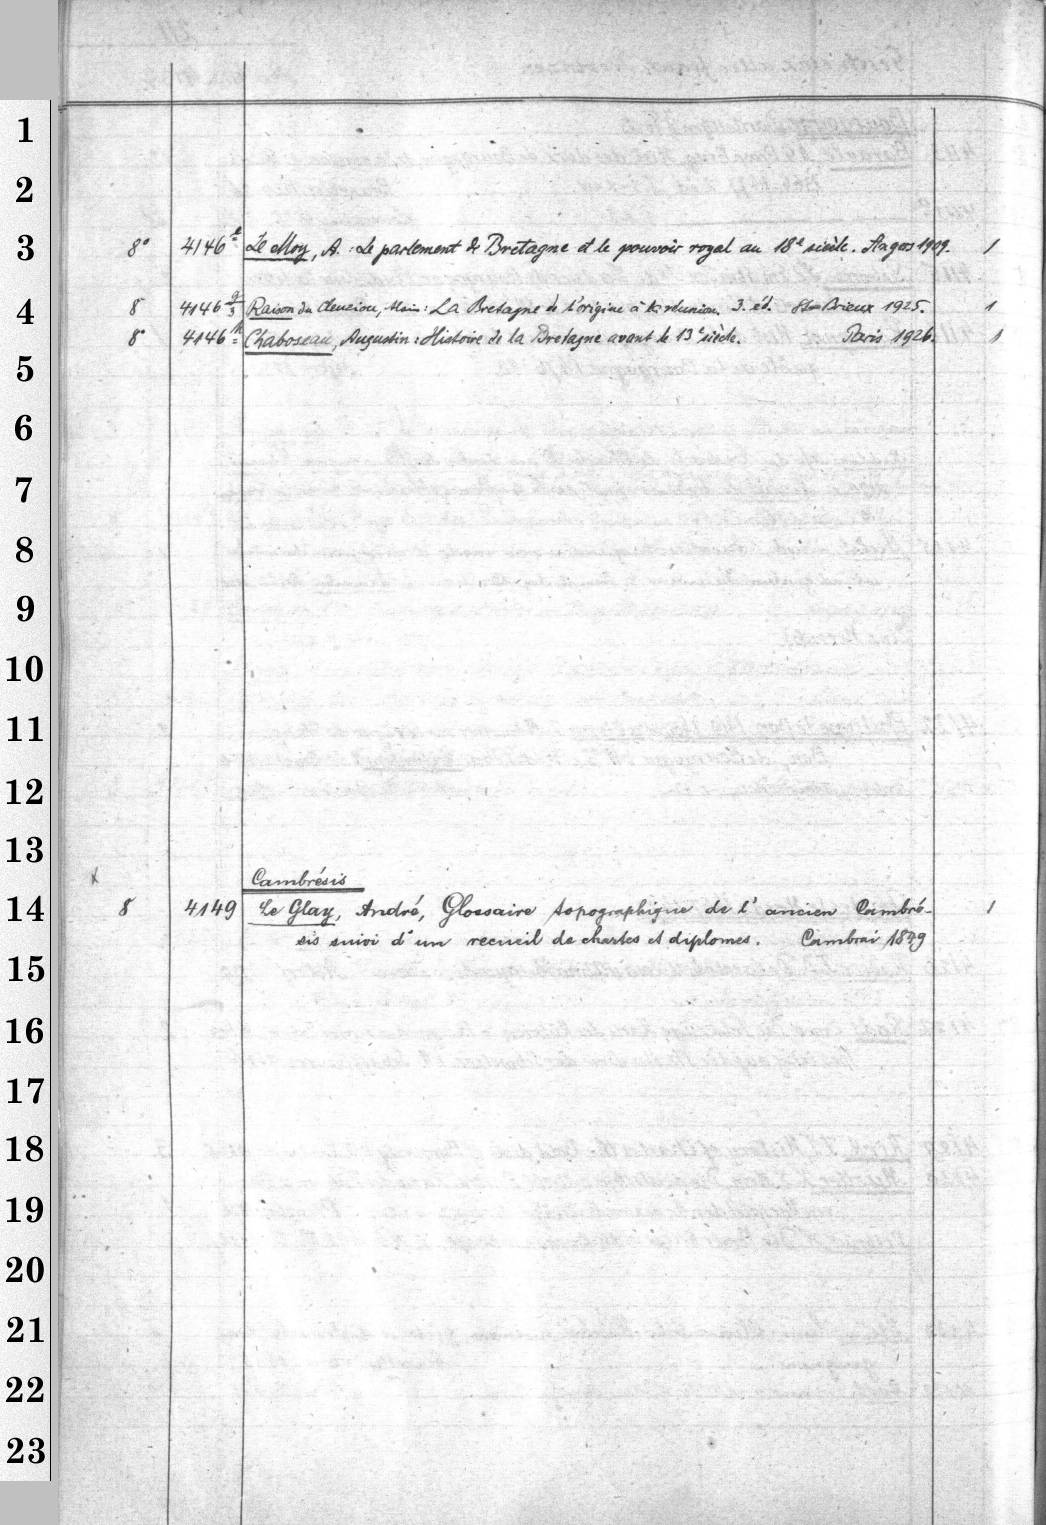 1
2
3 8° 4146 Le Moy, A.: Le parlement de Bretagne et le pouvoir royal au 18e siècle. Angers 1909. 1
4 8 4146 Raison du Cleuziou, Alain: La Bretagne de l'origine à la réunion. 3. éd. St-Brieux 1925. 1
8° 4146 h Chaboseau, Augustin: Histoire de la Bretagne avant le 13e siècle. Paris 1926. 1
5
6
7
8
9
10
11
12
13
x Cambrésis
14 8 4149 Le Glay, André, Glossaire topographique de l'ancien Cambré-
sis suivi d'un recueil de chartes et diplomes. Cambrai 1849
15
16
17
18
19
20
21
22
23